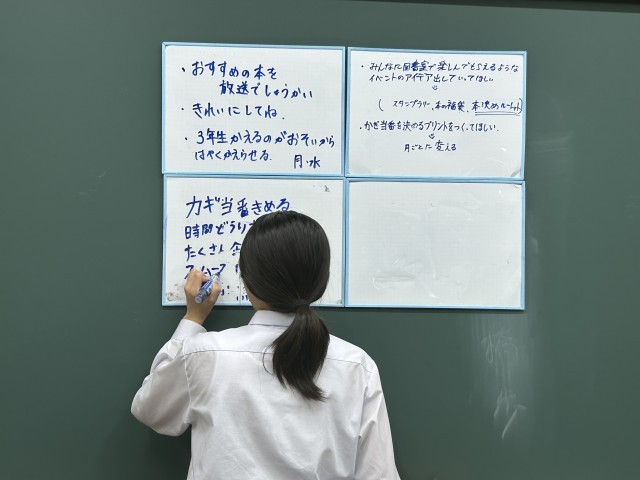 ・おすすめの本を
放送でしょうかい
・きれいにしてね.
・3年生かえるのがおそいから
はやくかえらせる. 月・水
・みんなに図書室で楽しんでもらえるような
イベントのアイデア出していってほしい
↓
(スタンプラリー、本の福袋、本決めルーレット)
・かぎ当番を決めるプリントをつくってほしい.
↓
月ごとに変える
カギ当番きめる
時間どうり
たくさん
スムーズ